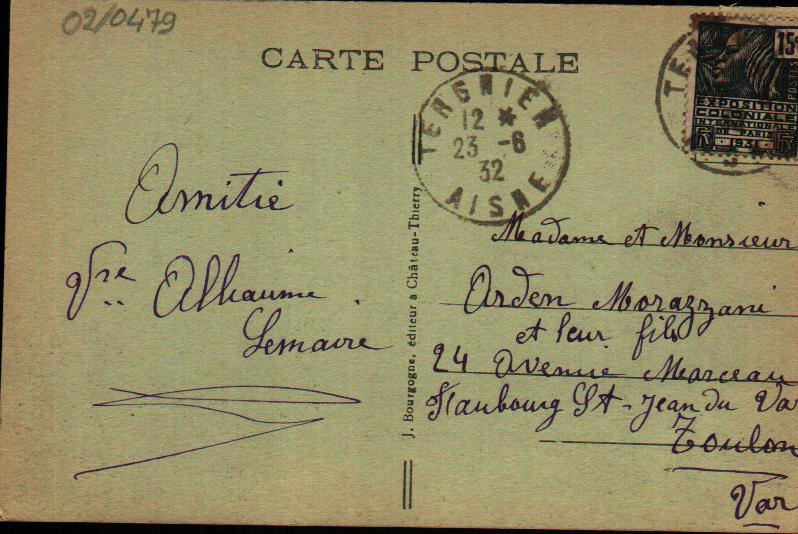 02/0479
CARTE POSTALE
TERGNIER
12 *
23 -6
32
AISNE
15c
POSTES
EXPOSITION
COLONIALE
INTERNATIONALE
DE PARIS
1931
RF RF
TE
Amitié
Vve Alhaume
Lemaire
J. Bourgogne, éditeur à Château-Thierry
Madame et Monsieur
Arden Morazzani
et leur fils
24 Avenue Marceau
Faubourg St-Jean du Va
Toulon
Var